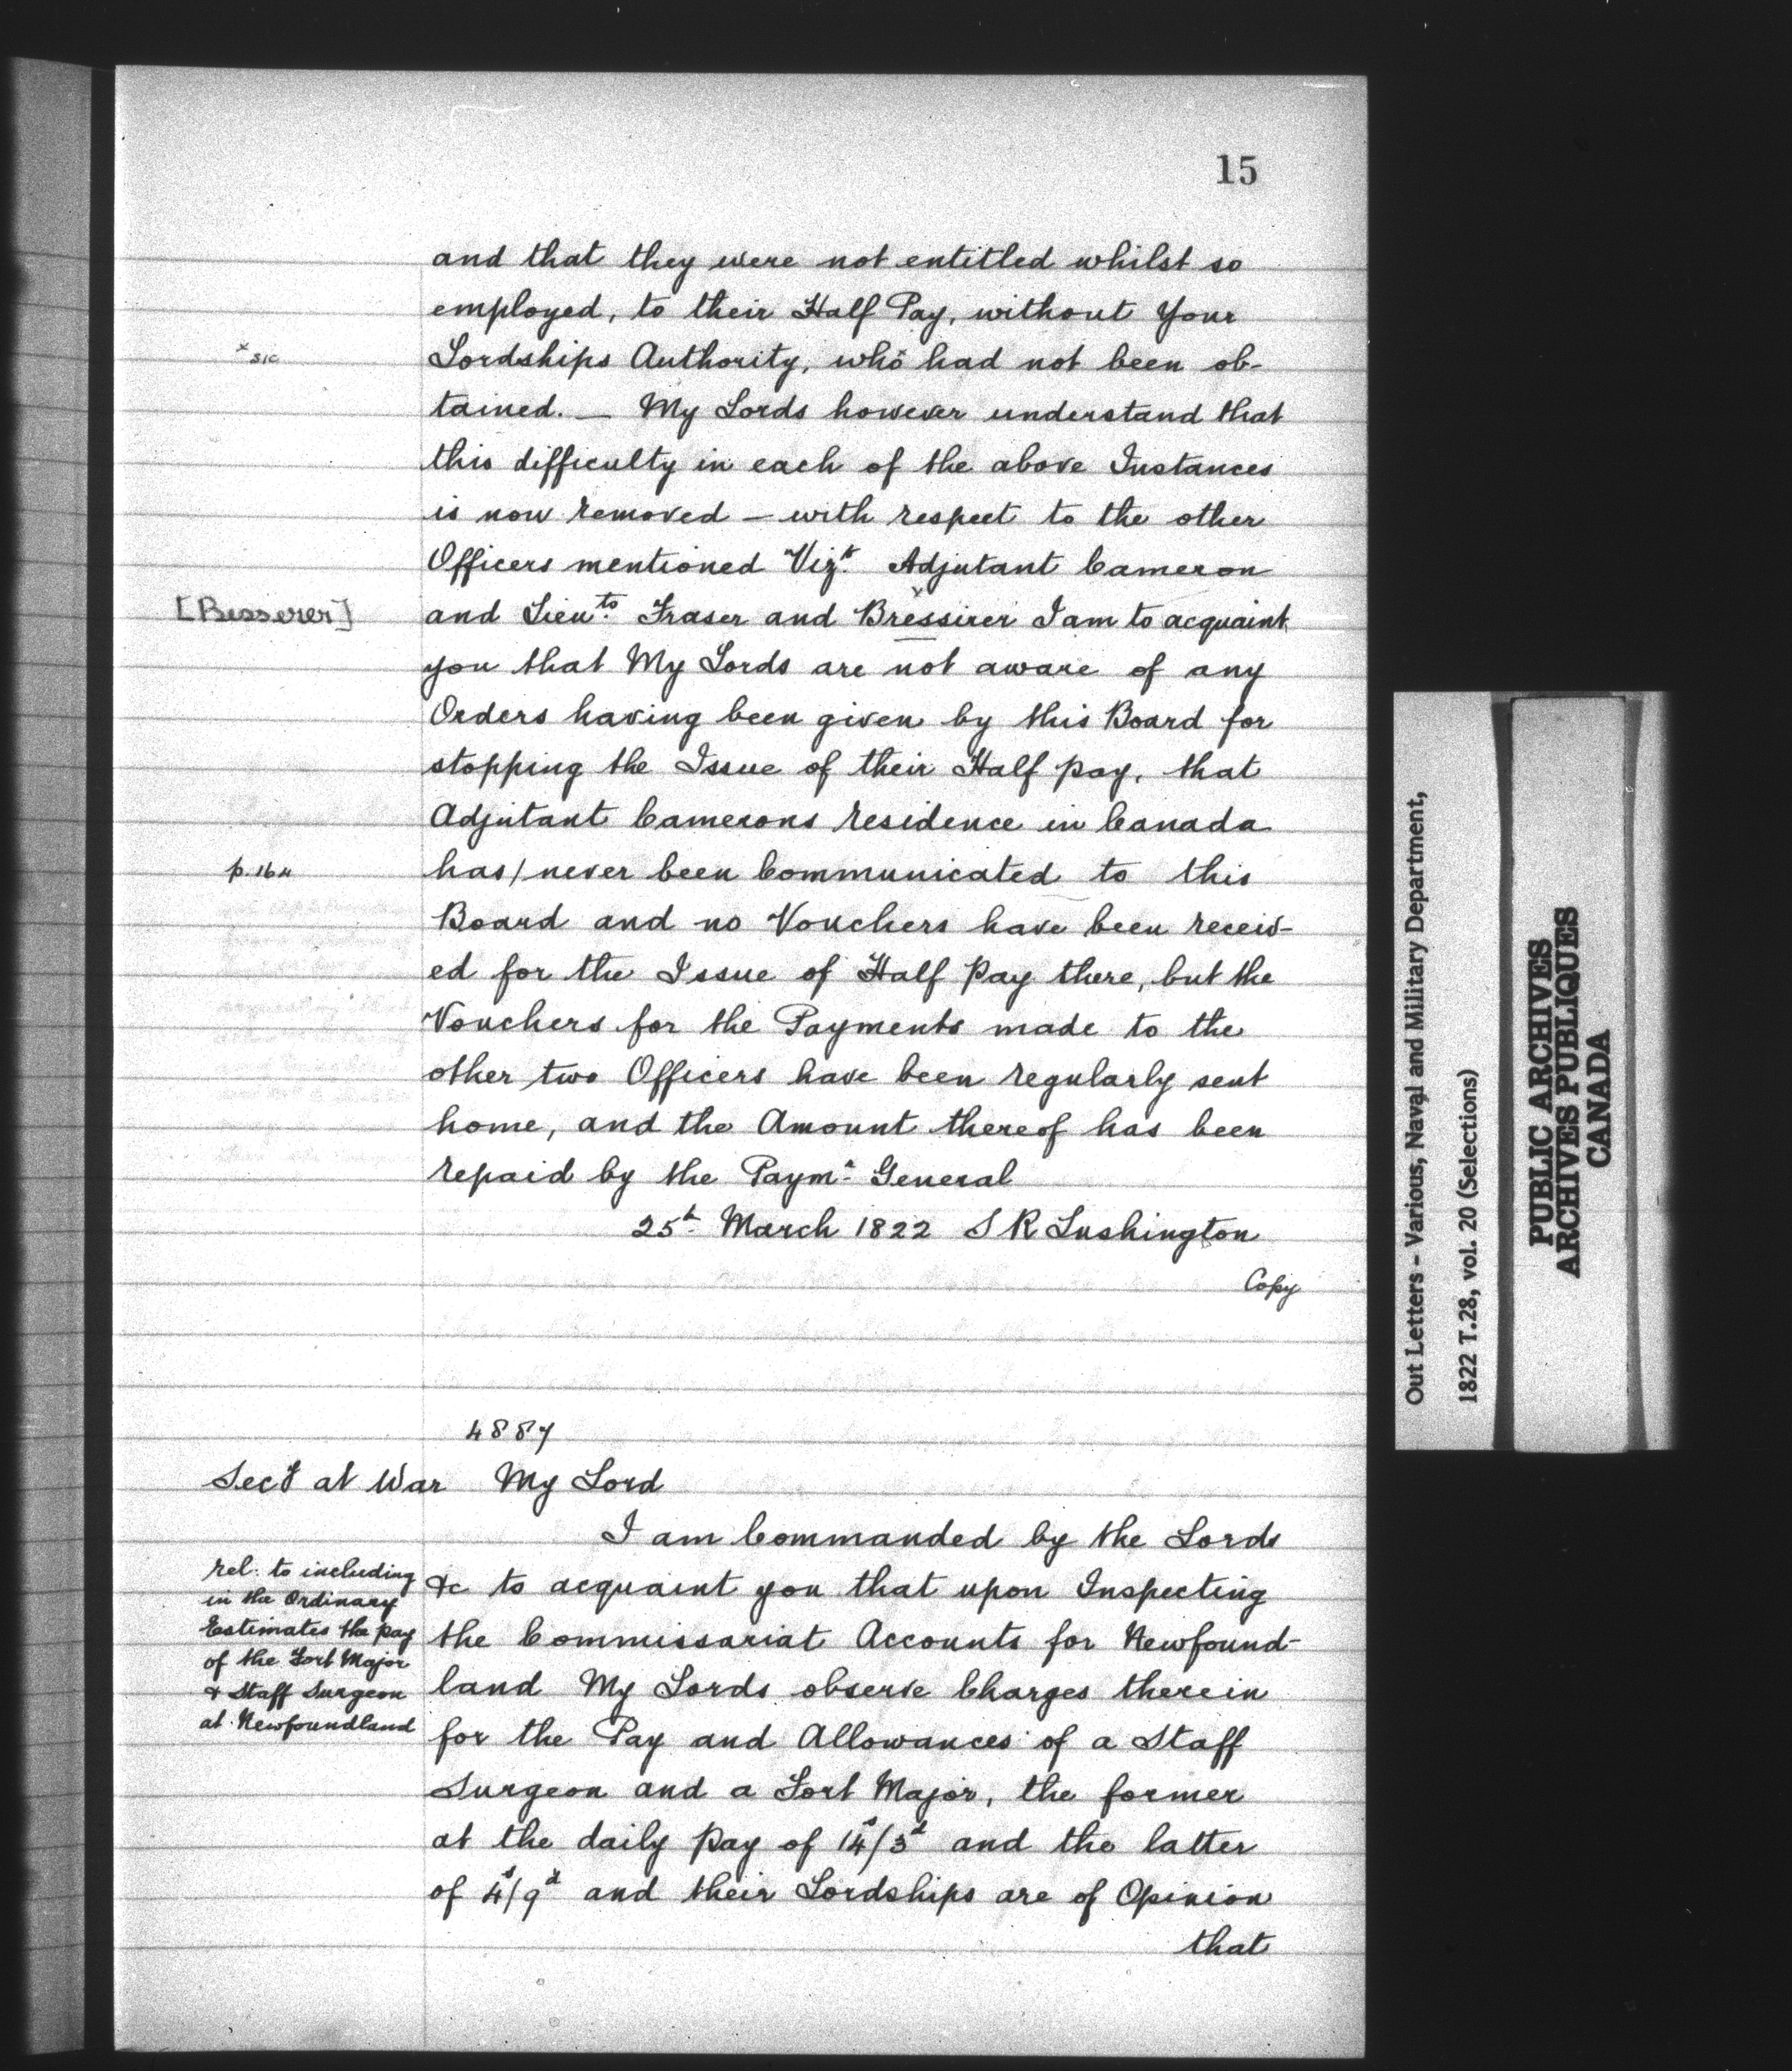 15
and that they were not entitled whilst so
employed, to their Half Pay, without Your
x sic
Lordships Authority, who x had not been ob-
tained. — My Lords however understand that
this difficulty in each of the above Instances
is now removed — with respect to the other
Officers mentioned Vizt. Adjutant Cameron
[Besserer]
and Lieuts. Fraser and Bressirer I am to acquaint
you that My Lords are not aware of any
Orders having been given by this Board for
stopping the Issue of their Half Pay, that
Adjutant Camerons residence in Canada
has / never been Communicated to this
Board and no Vouchers have been receiv-
ed for the Issue of Half Pay there, but the
Vouchers for the Payments made to the
other two Officers have been regularly sent
home, and the Amount thereof has been
repaid by the Paymr. General
25th March 1822 S R Lushington
Copy
4887
Secy at War My Lord
I am Commanded by the Lords
rel: to including
in the Ordinary
Estimates the pay
of the Fort Major
& Staff Surgeon
at Newfoundland
&c to acquaint you that upon Inspecting
the Commissariat Accounts for Newfound-
land My Lords observe Charges therein
for the Pay and Allowances of a Staff
Surgeon and a Fort Major, the former
at the daily Pay of 14s/3d and the latter
of 4s/9d and their Lordships are of Opinion
that
Out Letters - Various, Naval and Military Department,
1822 T.28, vol. 20 (Selections)
PUBLIC ARCHIVES
ARCHIVES PUBLIQUES
CANADA